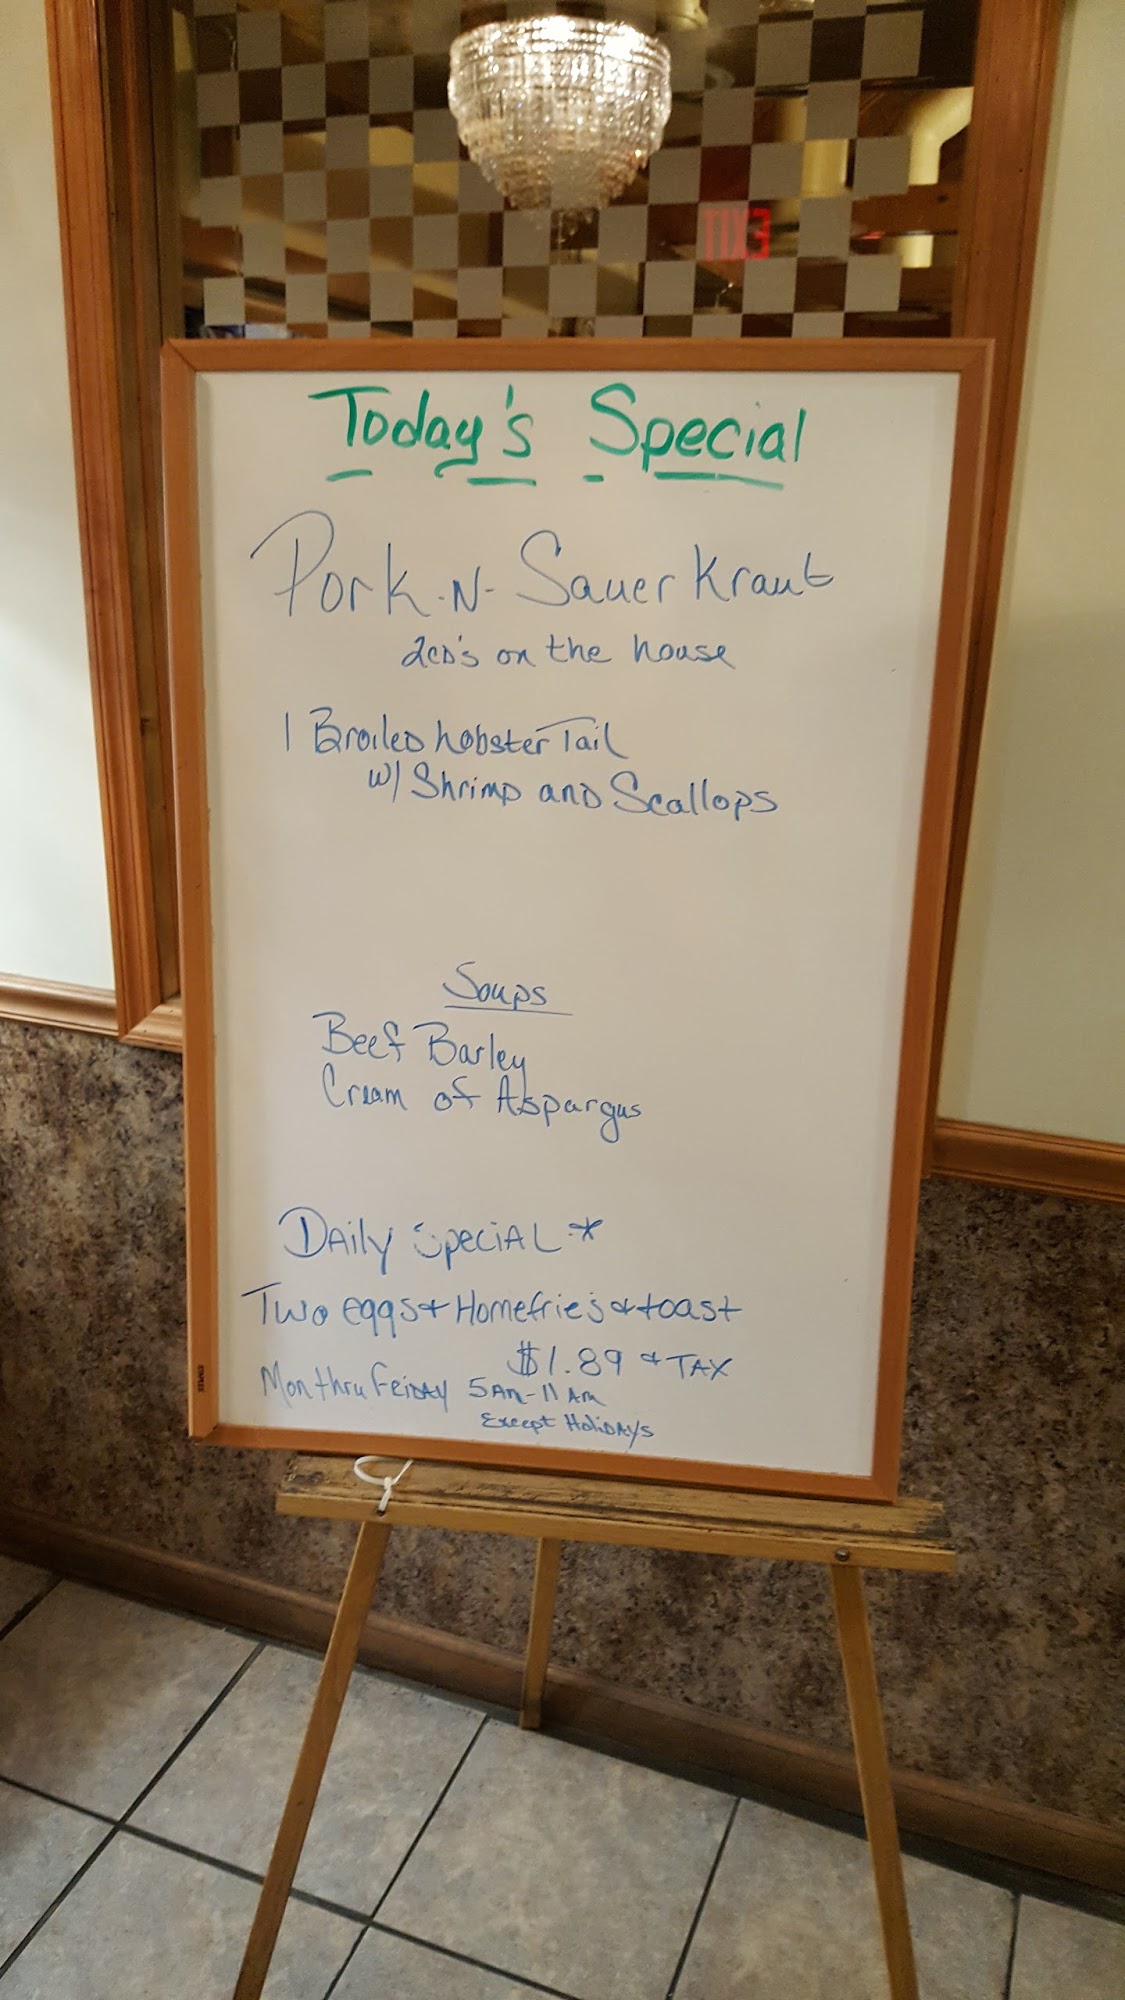 EXIT
Today's Special
Pork-N-Sauer Kraut
2CD's on the house
1 Broiled Lobster Tail
w/ Shrimp and Scallops
Soups
Beef Barley
Cream of Aspargus
Daily Special *
Two eggs + Homefries + toast
$1.89 + TAX
Mon thru Friday 5Am-11Am
Except Holidays
STAPLES